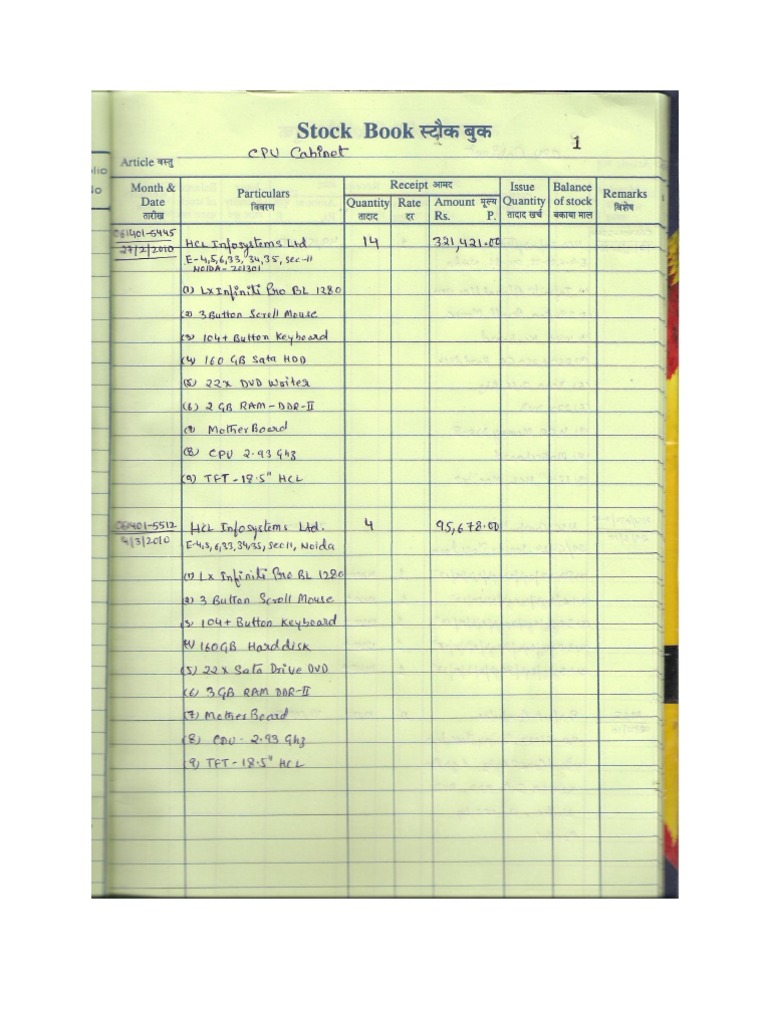 Stock Book स्टौक बुक
1
Article वस्तु CPU Cabinet
olio
No
Month & Date तारीख
Particulars विवरण
Receipt आमद
Quantity तादाद
Rate दर
Amount मूल्य Rs. P.
Issue Quantity तादाद खर्च
Balance of stock बकाया माल
Remarks विशेष
061401-5445 HCL Infosystems Ltd 14 321,421.00
27/2/2010 E-4,5,6,33, 34,35, Sec-11
NOIDA-201301
(1) Lx Infiniti Pro BL 1280
(2) 3 Button Scroll Mouse
(3) 104+ Button Keyboard
(4) 160 GB Sata HDD
(5) 22x DVD Writer
(6) 2 GB RAM-DDR-II
(7) MotherBoard
(8) CPU 2.93 Ghz
(9) TFT-18.5" HCL
061401-5512 HCL Infosystems Ltd. 4 95,678.00
4/3/2010 E-4,5,6,33,34,35, Sec 11, Noida
(1) Lx Infiniti Pro BL 1280
(2) 3 Button Scroll Mouse
(3) 104+ Button Keyboard
(4) 160GB Harddisk
(5) 22x Sata Drive DVD
(6) 3GB RAM DDR-II
(7) MotherBoard
(8) CPU - 2.93 Ghz
(9) TFT-18.5" HCL